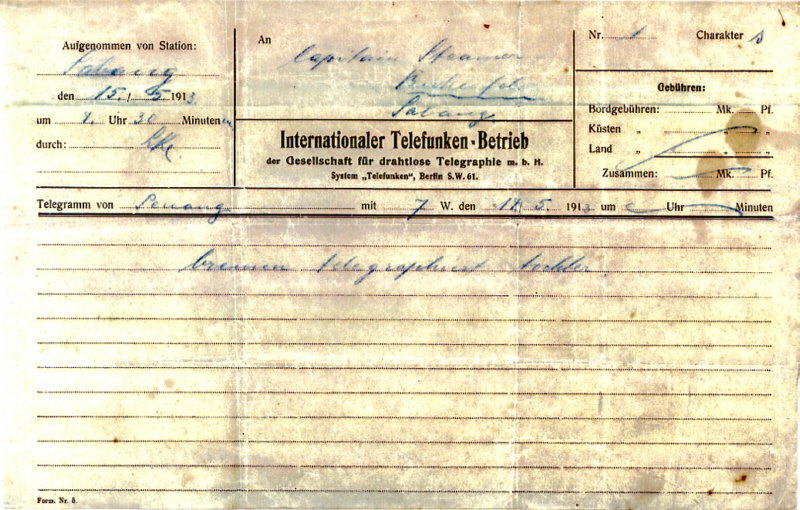 Aufgenommen von Station:
Sabang
den 15./5 1913
um 7. Uhr 30 Minuten
durch:
An
Capitain
Sabang
Nr. 1 Charakter
Gebühren:
Bordgebühren: Mk. Pf.
Küsten „ „ „
Land „ „ „
Zusammen: Mk. Pf.
Internationaler Telefunken-Betrieb
der Gesellschaft für drahtlose Telegraphie m. b. H.
System „Telefunken", Berlin S.W. 61.
Telegramm von Penang mit 7 W. den 5. 1913 um Uhr Minuten
bremen telegraphiert tochter
Form. Nr. 5.